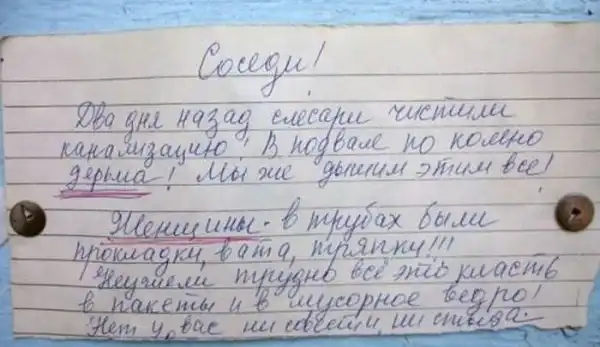 Соседи!
Два дня назад слесари чистили
канализацию! В подвале по колено
дерьма! Мы же дышим этим все!
Женщины - в трубах были
прокладки, вата, тряпки!!!
Неужели трудно всё это класть
в пакеты и в мусорное ведро!
Нет у вас ни совести, ни стыда.